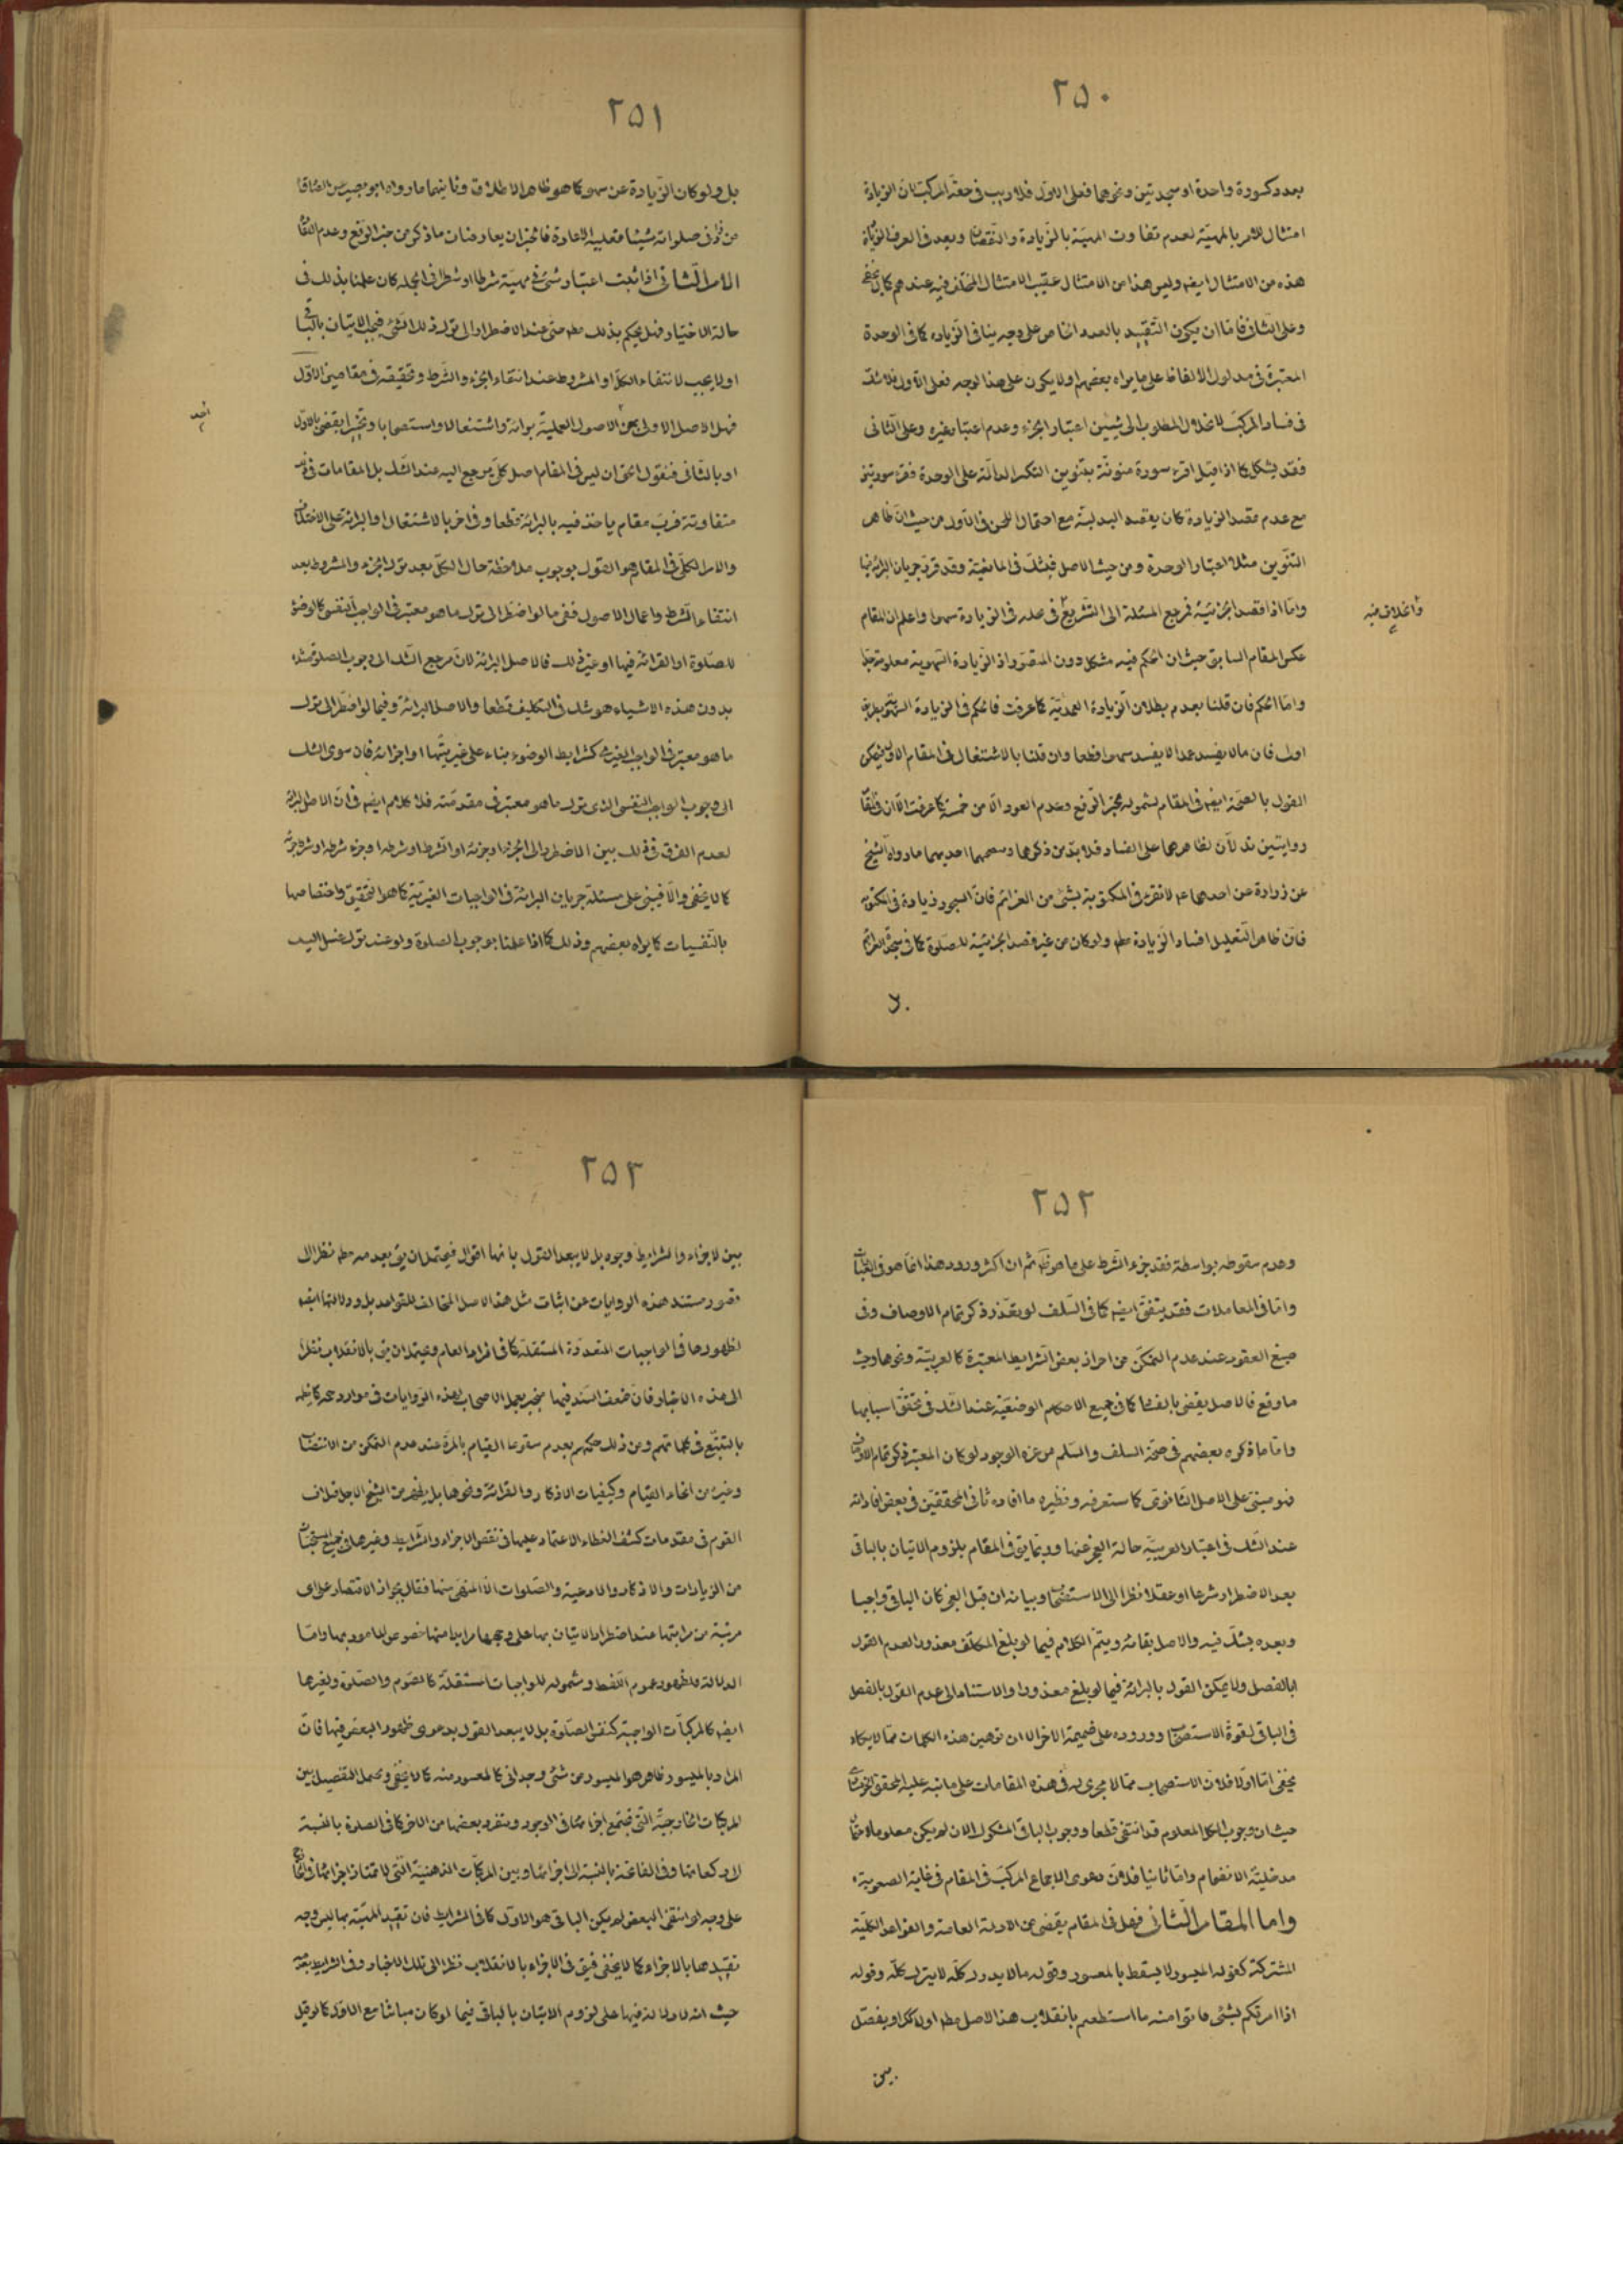 ٢٥٠
بعدد كسورة واحدة او سجدتين ونحوهما فعلى الاول فلا ريب فى صحة المركب لان الزيادة
امتثال للامر بالمهية لعدم تفاوت المهية بالزيادة والنقصان ويعد فى العرف الزيادة
هذه من الامتثال ايضا وليس هذا من الامتثال عقيب الامتثال المختلف فيه عندهم كما لا يخفى
وعلى الثانى فاما ان يكون التقييد بالعدد الخاص على وجه ينافى الزيادة كما فى الوحدة
المعتبرة فى مدلول الالفاظ على ما يراه بعضهم او لا يكون على هذا الوجه فعلى الاول فلا شك
فى فساد المركب لانحلال المطلوب الى شيئين اعتبار الجزء وعدم اعتبار غيره وعلى الثانى
فقد يشكل كما اذا قيل اقرء سورة منونة بتنوين التنكير الدالة على الوحدة فقرء سورتين
مع عدم قصد الزيادة كان يقصد البدلية مع احتمال اللحن فى الاول من حيث ان ظاهر
التنوين مثلا اعتبار الوحدة ومن حيث الاصل فيشك فى المانعية وقد قرر جريان البرائة فيها
واما اذا قصد الجزئية فمرجع المسئلة الى التشريع فى عمله فى الزيادة سهوا واعلم ان المقام
عكس المقام السابق حيث ان الحكم فيه مشكل دون التصور اذ الزيادة السهوية معلومة جدا
واما الحكم فان قلنا بعدم بطلان الزيادة العمدية كما عرفت فالحكم فى الزيادة السهوية بطريق
اولى فان ما لا يفسد عمدا لا يفسد سهوا قطعا وان قلنا بالاشتغال فى المقام الاول فيمكن
القول بالصحة ايضا فى المقام لشموله بخبر الرفع وعدم العود الا من خمسة كما عرفت الا ان فى المقام
روايتين تدلان بظاهرهما على الفساد فلا بد من ذكرهما وسمعهما احديهما ما رواه الشيخ
عن زرارة عن احدهما ع لا تقرء فى المكتوبة بشئ من العزائم فان السجود زيادة فى المكتوبة
فان ظاهر التعليل افساد الزيادة مط ولو كان من غير قصد الجزئية للصلوة كما فى سجدة العزائم
٢٥١
بل ولو كان الزيادة عن سهو كما هو ظاهر الاطلاق وثانيهما ما رواه ابو بصير عن الصادق
من زاد فى صلوته شيئا فعليه الاعادة فالخبران يعارضان ما ذكر من خبر الرفع وعدم الاعادة
الامر الثانى اذا ثبت اعتبار شئ فى مهية شرطا او شطرا فى الجملة كان علمنا بذلك فى
حالة الاختيار فهل يحكم بذلك مط حتى عند الاضطرار الى ترك ذلك الشئ فيجب الاتيان بالباقى
او لا يجب لانتفاء الكل او المشروط عند انتقاء الجزء والشرط وتحقيقه فى مقامين الاول
فهل الاصل الاولى اعنى الاصول العملية برائة واشتغالا واستصحابا وتخييرا يقضى بالاول
او بالثانى فنقول الحق ان ليس فى المقام اصل كلى يرجع اليه عند الشك بل المقامات فى ذلك
متفاوتة فرب مقام يأخذ فيه بالبرائة قطعا وفى اخر بالاشتغال او البرائة على الاختلاف
والامر الكلى فى المقام هو القول بوجوب ملاحظة حال الكل بعد ترك الجزء والمشروط بعد
انتفاء الشرط واعمال الاصول ففى ما لو اضطر الى ترك ما هو معتبر فى الواجب النفسى كالوضوء
للصلوة او القرائة فيها او غير ذلك فالاصل البرائة لان مرجع الشك الى وجوب الصلوة مثلا
بدون هذه الاشياء هو شك فى التكليف قطعا والاصل البرائة وفيما لو اضطر الى ترك
ما هو معتبر فى الواجب الغيرى كشرايط الوضوء بناء على غيريتها او اجزائه فان سوى الشك
الى وجوب الواجب النفسى الذى ترك ما هو معتبر فى مقدمته فلا كلام ايضا فى ان الاصل البرائة
لعدم الفرق فى ذلك بين الاضطرار الى الجزء او جزئه او الشرط او شرطه او جزء شرطه او شرط جزئه
كما لا يخفى والا فيبنى على مسئلة جريان البرائة فى الواجبات الغيرية كما هو التحقيق واختصاصها
بالنفسيات كما يراه بعضهم وذلك كما اذا علمنا بوجوب الصلوة ولو عند ترك غسل اليد
٢٥٢
وعدم سقوطه بواسطة فقد جزء الشرط على ما هو ظ ثم ان اكثر ورود هذا انما هو فى العبادات
واما فى المعاملات فقد يتفق ايضا كما فى السلف لو تعذر ذكر تمام الاوصاف وفى
صيغ العقود عند عدم التمكن من احراز بعض الشرايط المعتبرة كالعربية ونحوها وحيث
ما وقع فالاصل يقضى بالفساد كما فى جميع الاحكام الوضعية عند الشك فى تحقق اسبابها
واما ما ذكره بعضهم فى صحة السلف والسلم من عزة الوجود لو كان المعتبر ذكر تمام الاوصاف
فهو مبنى على الاصل الثانوى كما ستعرفه ونظيره ما افاده ثانى المحققين فى بعض افاداته
عند الشك فى اعتبار العربية حالة العجز عنها وربما يق فى المقام بلزوم الاتيان بالباقى
بعد الاضطرار شرعا او عقلا نظرا الى الاستصحاب وبيانه ان قبل العجز كان الباقى واجبا
وبعده يشك فيه والاصل بقائه ويتم الكلام فيما لو بلغ المكلف معذورا لعدم القول
بالفصل ولا يمكن القول بالبرائة فيما لو بلغ معذورا والاستناد الى عدم القول بالفصل
فى الباقى لقوة الاستصحاب ووروده على ضميمة الاخر الا ان توهين هذه الكلمات مما لا يكاد
يخفى اما اولا فلان الاستصحاب مما لا مجرى له فى هذه المقامات على ما نبه عليه المحقق الخونسارى
حيث ان وجوب الكل المعلوم قد انتفى قطعا ووجوب الباقى المشكوك الان لم يكن معلوما لاحتمال
مدخلية الانضمام واما ثانيا فلان دعوى الاجماع المركب فى المقام فى غاية الصعوبة
واما المقام الثانى فهل فى المقام يقضى من الادلة العامة والقواعد الكلية
المشتركة كقوله الميسور لا يسقط بالمعسور وقوله ما لا يدرك كله لا يترك كله وقوله
اذا امرتكم بشئ فاتوا منه ما استطعتم بانقلاب هذا الاصل مط او لا كذلك او يفصل
بين
٢٥٣
بين الاجزاء والشرايط وجوه بل لا يبعد القول بانها اقوال فيحتمل ان يق بعدمه مط نظرا الى
قصور مستند هذه الروايات عن اثبات مثل هذا الاصل المخالف للقواعد بل ودلالتها ايضا
لظهورها فى الواجبات المتعددة المستقلة كما فى افراد العام ويحتمل ان يق بالانقلاب نظرا
الى هذه الاخبار فان ضعف السند فيها منجبر بعمل الاصحاب بهذه الروايات فى موارد عديدة كما يظهر
بالتتبع فى كلماتهم ومن ذلك حكمهم بعدم سقوط القيام بالمرة عند عدم التمكن من الانتصاب
وغيره من انحاء القيام وكيفيات الاذكار والقرائة ونحوها بل يظهر من الشيخ الاجل خلاف
القوم فى مقدمات كشف الغطاء الاعتماد عليها فى نقص الاجزاء والشرايط وغيرها فى جميع المستحبات
من الزيارات والاذكار والادعية والصلوات الا المنهى منها فقال بجواز الاقتصار على اى
مرتبة من مراتبها عند اضطرار الاتيان بها على وجهها
الدلالة فلظهور عموم اللفظ وشموله للواجبات المستقلة كالصوم والصلوة ولغيرها
ايضا كالمركبات الواجبة كنفس الصلوة بل لا يبعد القول بدعوى ظهور البعض فيها فان
المراد بالميسور ظاهر هو الميسور من شئ وجدانى كالمعسور منه كما لا يخفى ويحتمل التفصيل بين
المركبات الخارجية التى تجتمع اجزائها فى الوجود وينفرد بعضها من الاخر كما فى الصلوة بالنسبة
لا ركعاتها وفى الفاتحة بالنسبة الى اجزائها وبين المركبات الذهنية التى لا تمتاز اجزائها فى الخارج
على وجه لو انتفى البعض لم يكن الباقى هو الاول كما فى الشرايط فان تقييد المهية بها ليس وجه
تقييدها بالاجزاء كما لا يخفى فيق فى الاجزاء بالانقلاب نظرا الى تلك الاخبار وفى الشرايط بعدمه
حيث انه لا دلالة فيها على لزوم الاتيان بالباقى فيما لو كان مباينا مع الاول كما لو قيل